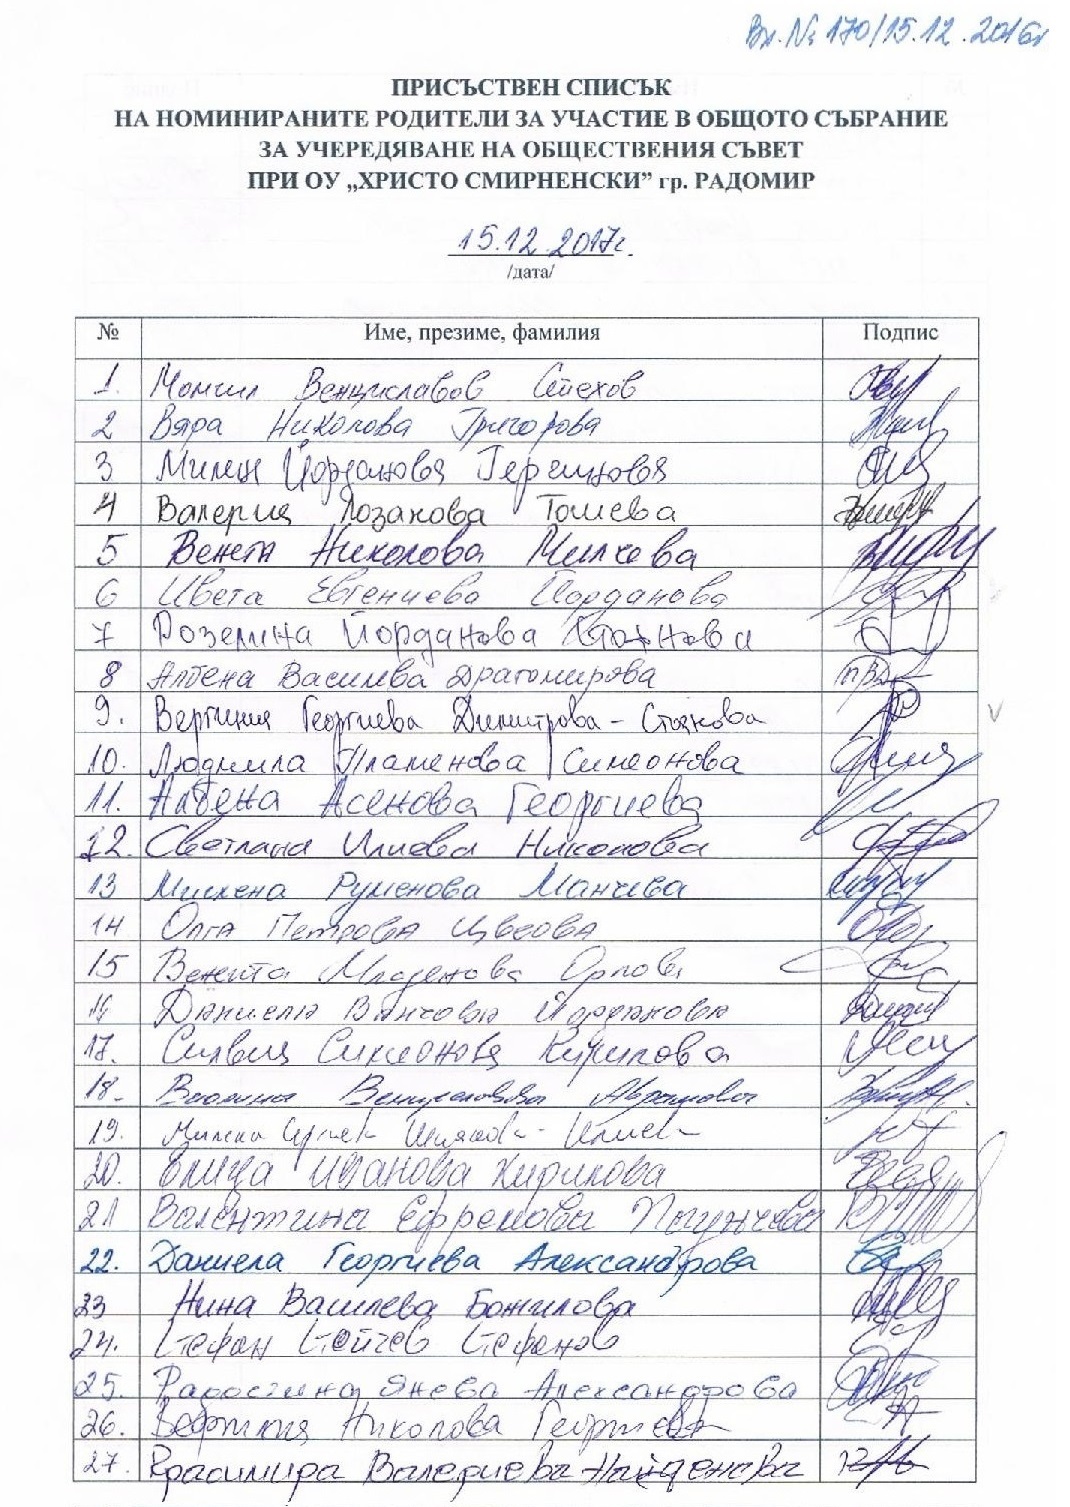 Вх. № 170/15.12.2016г
ПРИСЪСТВЕН СПИСЪК
НА НОМИНИРАНИТЕ РОДИТЕЛИ ЗА УЧАСТИЕ В ОБЩОТО СЪБРАНИЕ
ЗА УЧЕРЕДЯВАНЕ НА ОБЩЕСТВЕНИЯ СЪВЕТ
ПРИ ОУ „ХРИСТО СМИРНЕНСКИ” гр. РАДОМИР
15.12.2017г.
/дата/
№ Име, презиме, фамилия Подпис
1. Момчил Венциславов
2 Вяра Николова Григорова
3 Милен Йорданова
4 Валерия Лозанова Тошева
5 Венета Николова Милчева
6 Цвета Евгениева Йорданова
7 Розелина Йорданова Стоянова
8 Албена Василева Драгомирова
9. Вергиния Георгиева Димитрова - Стоянова
10. Людмила Пламенова Симеонова
11. Албена Асенова Георгиева
12. Светлана Илиева Николова
13 Милена Руменова Манчева
14 Олга Петрова
15 Венета Младенова Орлова
16 Даниела Ванчова Йорданова
17. Силвия Симеонова Кирилова
18.
19.
20. Елица Иванова Кирилова
21 Валентина Ефремова
22. Даниела Георгиева Александрова
23 Нина Василева Божилова
24. Стефан Стойчев Стефанов
25. Радостина Янева Александрова
26. Николова Георгиева
27. Красимира Валериева Найденова